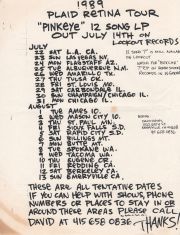 1989
PLAID RETINA TOUR
"PINKEYE" 12 SONG LP
OUT JULY 14TH ON
LOOKOUT RECORDS
JULY
22 SAT L.A. CA.
24 MON FLAGSTAFF AZ.
25 TUE ALBUQUERQUE N.M.
26 WED AMARILLO TX.
27 THU TULSA OK.
28 FRI ST. LOUIS MO.
29 SAT CARBONDALE IL.
30 SUN CHAMPAIGN/CHICAGO IL.
31 MON CHICAGO IL.
AUGUST
1 TUE AMES IO.
2 WED MASON CITY IO.
3 THU ST. PAUL MN.
4 FRI SIOUX FALLS S.D.
5 SAT RAPID CITY S.D.
6 SUN BILLINGS MT.
7 MON BUTTE MT.
8 TUE SPOKANE WA.
9 WED TACOMA WA.
10 THU EUGENE OR.
11 FRI REDDING CA.
12 SAT BERKELEY CA.
13 SUN EMERYVILLE CA.
THESE ARE ALL TENTATIVE DATES
IF YOU CAN HELP WITH SHOWS, PHONE
NUMBERS OR PLACES TO STAY IN OR
AROUND THESE AREAS PLEASE CALL
DAVID AT 415 658 0836 THANKS!